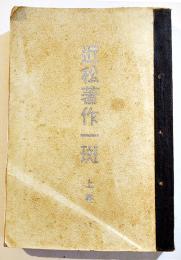 近松著作一斑
上巻